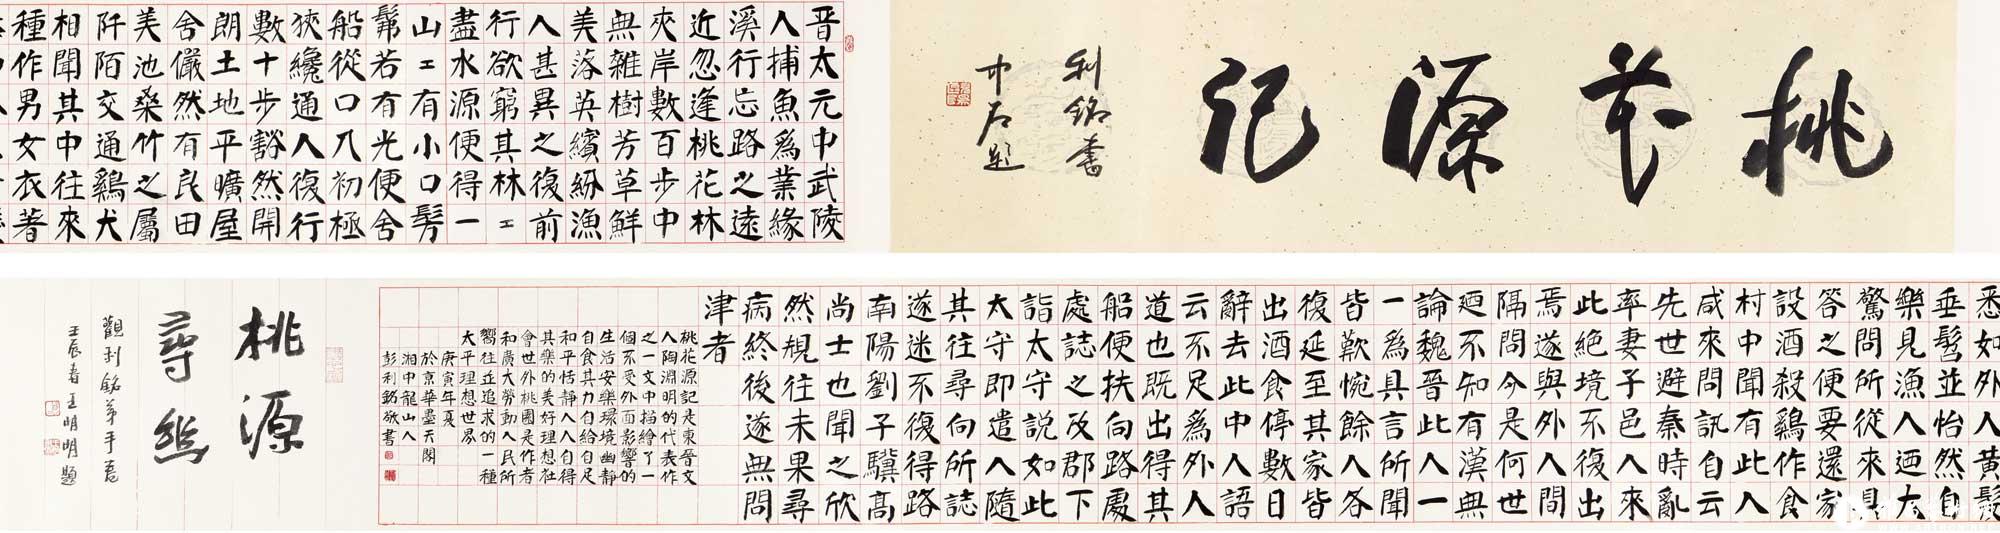 桃花源记
利銘書
中石題
晋太元中武陵
人捕魚爲業緣
溪行忘路之遠
近忽逢桃花林
夾岸數百步中
無雜樹芳草鮮
美落英繽紛漁
人甚異之復前
行欲窮其林〻
盡水源便得一
山〻有小口髣
髴若有光便舍
船從口入初極
狹纔通人復行
數十步豁然開
朗土地平曠屋
舍儼然有良田
美池桑竹之屬
阡陌交通鷄犬
相聞其中往來
種作男女衣著
悉如外人黃髮
垂髫並怡然自
樂見漁人迺大
驚問所從來具
答之便要還家
設酒殺鷄作食
村中聞有此人
咸來問訊自云
先世避秦時亂
率妻子邑人來
此絶境不復出
焉遂與外人間
隔問今是何世
迺不知有漢無
論魏晉此人一
一爲具言所聞
皆歎惋餘人各
復延至其家皆
出酒食停數日
辭去此中人語
云不足爲外人
道也既出得其
船便扶向路處
處誌之及郡下
詣太守説如此
太守即遣人隨
其往尋向所誌
遂迷不復得路
南陽劉子驥高
尚士也聞之欣
然規往未果尋
病終後遂無問
津者
桃花源記是東晉文
人陶淵明的代表作
之一文中描繪了一
個不受外面影響的
生活安樂環境幽静
自食其力自給自足
和平恬静人人自得
其樂的美好理想社
會世外桃園是作者
和廣大勞動人民所
嚮往並追求的一種
太平理想世界
庚寅年夏
於京華盡天閣
湘中龍山人
彭利銘敬書
桃源
尋幽
觀利銘弟手卷
壬辰春王明明題